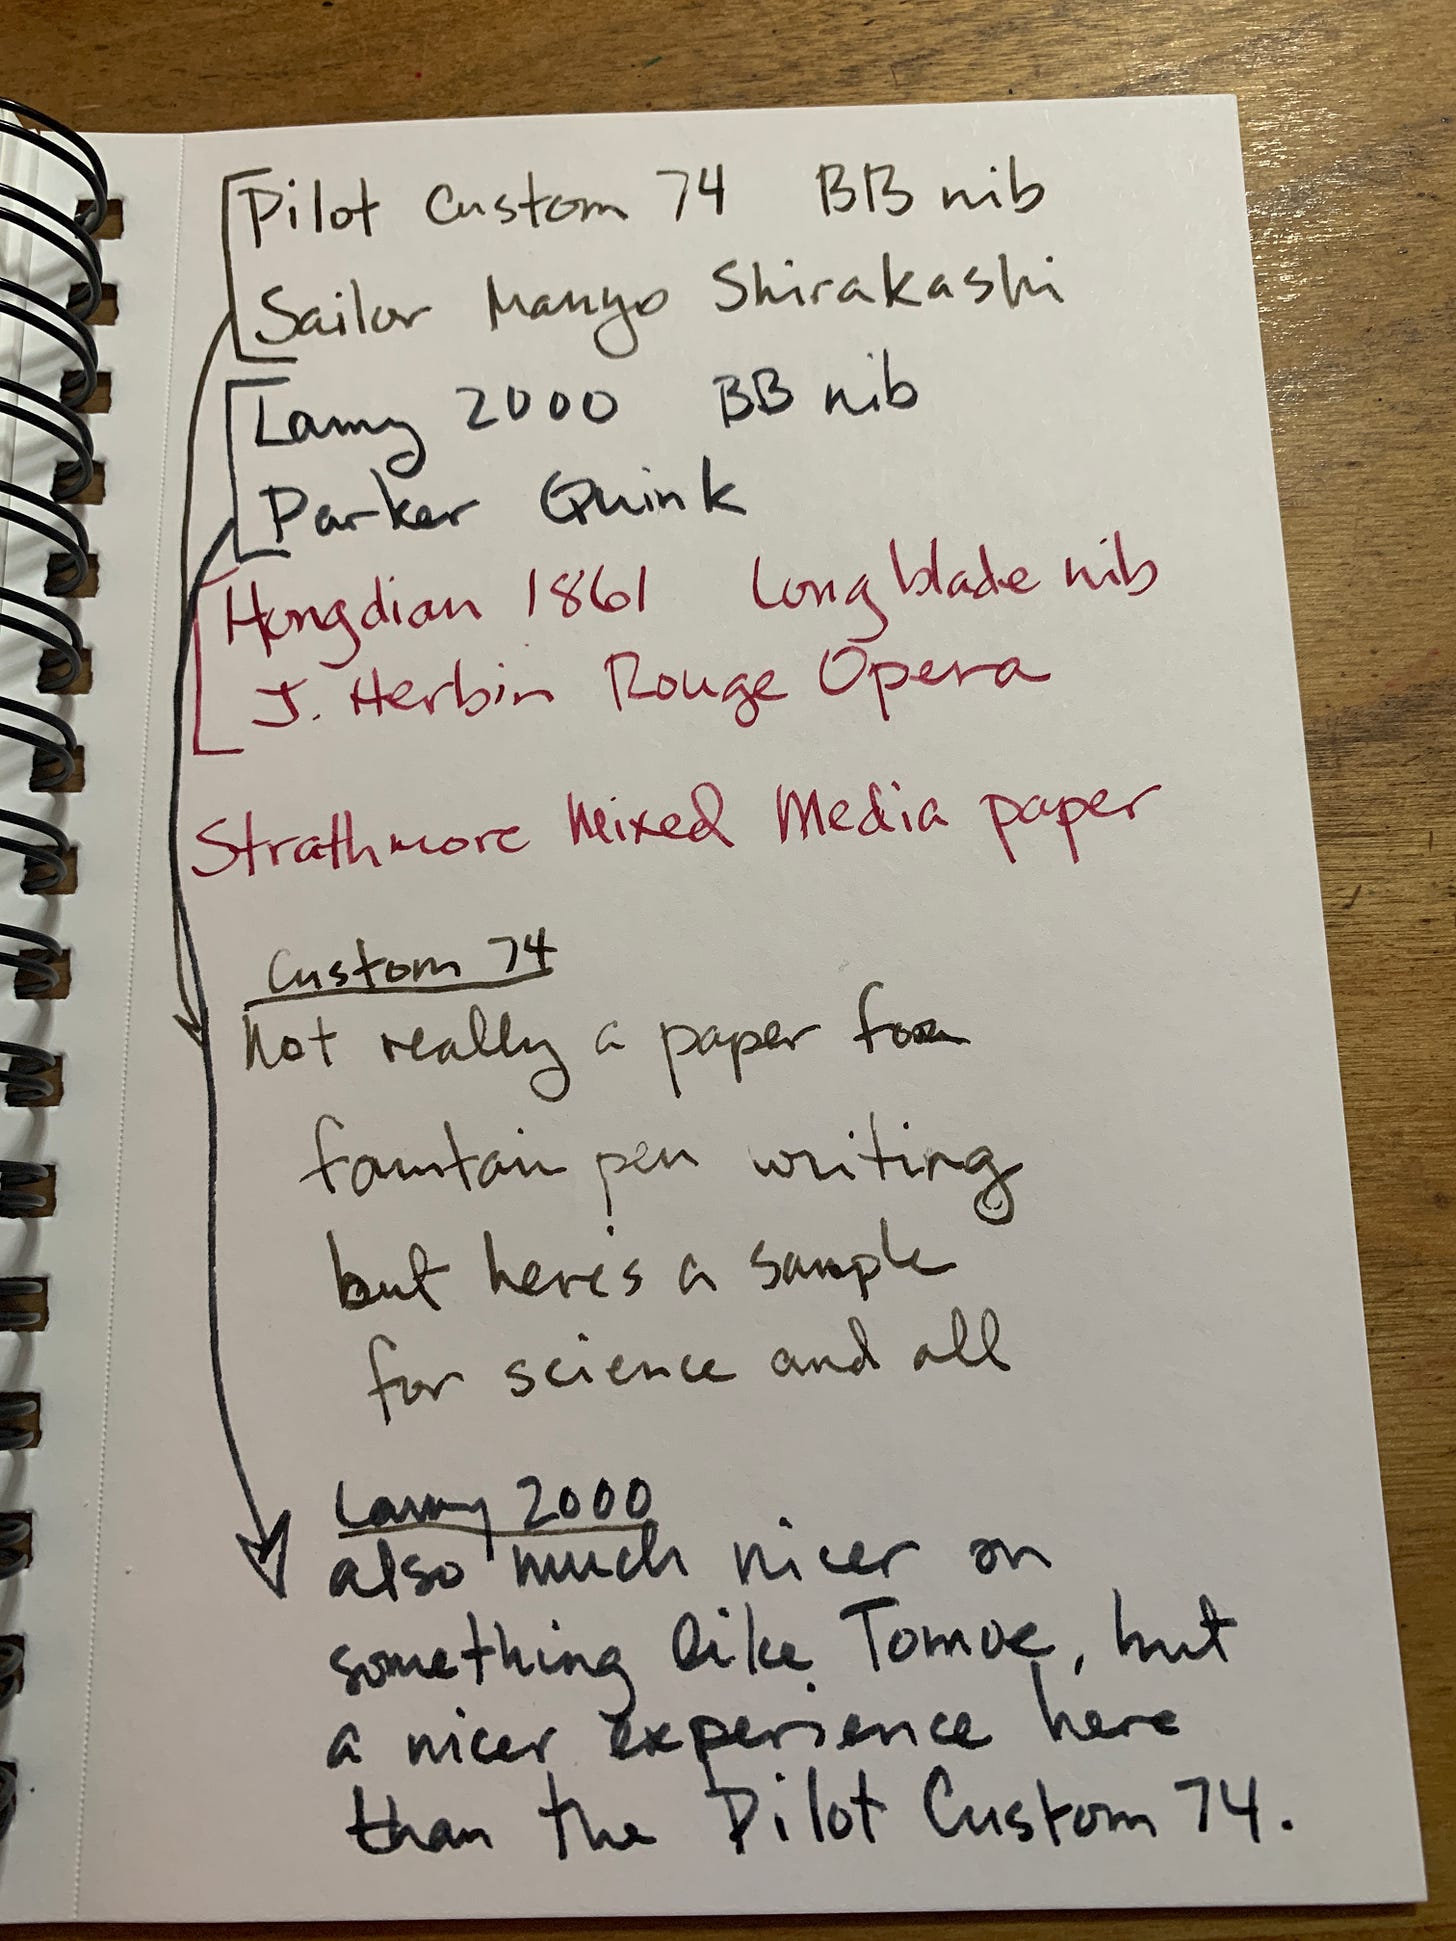 Pilot Custom 74 BB nib
Sailor Manyo Shirakashi
Lamy 2000 BB nib
Parker Quink
Hongdian 1861 Long blade nib
J. Herbin Rouge Opera
Strathmore Mixed Media paper
Custom 74
Not really a paper for
fountain pen writing
but here's a sample
for science and all
Lamy 2000
also much nicer on
something like Tomoe, but
a nicer experience here
than the Pilot Custom 74.